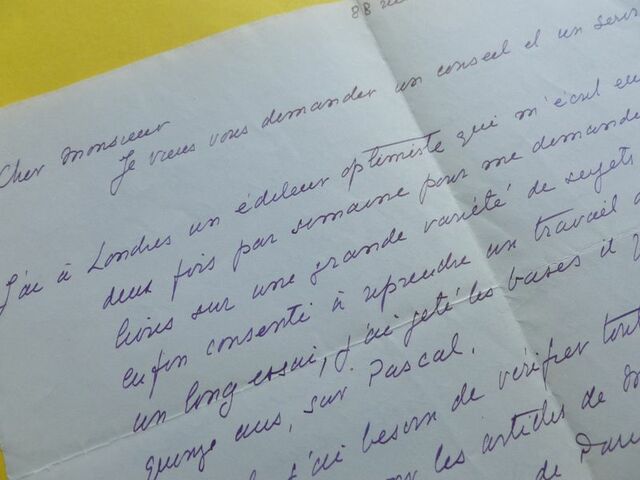 88 rue
Cher Monsieur
Je viens vous demander un conseil et un serv
J'ai à Londres un éditeur optimiste qui m'écrit en
deux fois par semaine pour me demande
livres sur une grande variété de sujets
enfin consenti à reprendre un travail
un long essai, j'ai jeté les bases il y
quinze ans, sur Pascal.
j'ai besoin de vérifier tout
les articles de
de